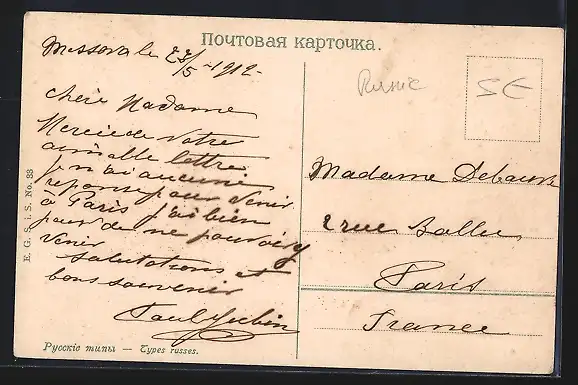 Почтовая карточка.
Missowa le 23/5 - 1912 -
Russie
5 E
Chère Madame
Merci de votre
aimable lettre
je n'ai aucune
reponse pour venir
à Paris j'ai bien
peur de ne pouvoir y
venir
Salutations et
bons souvenir
Paul
Madame
2 rue Ballu
Paris
France
E. G. S. i. S. No. 33
Русскіе типы — Types russes.